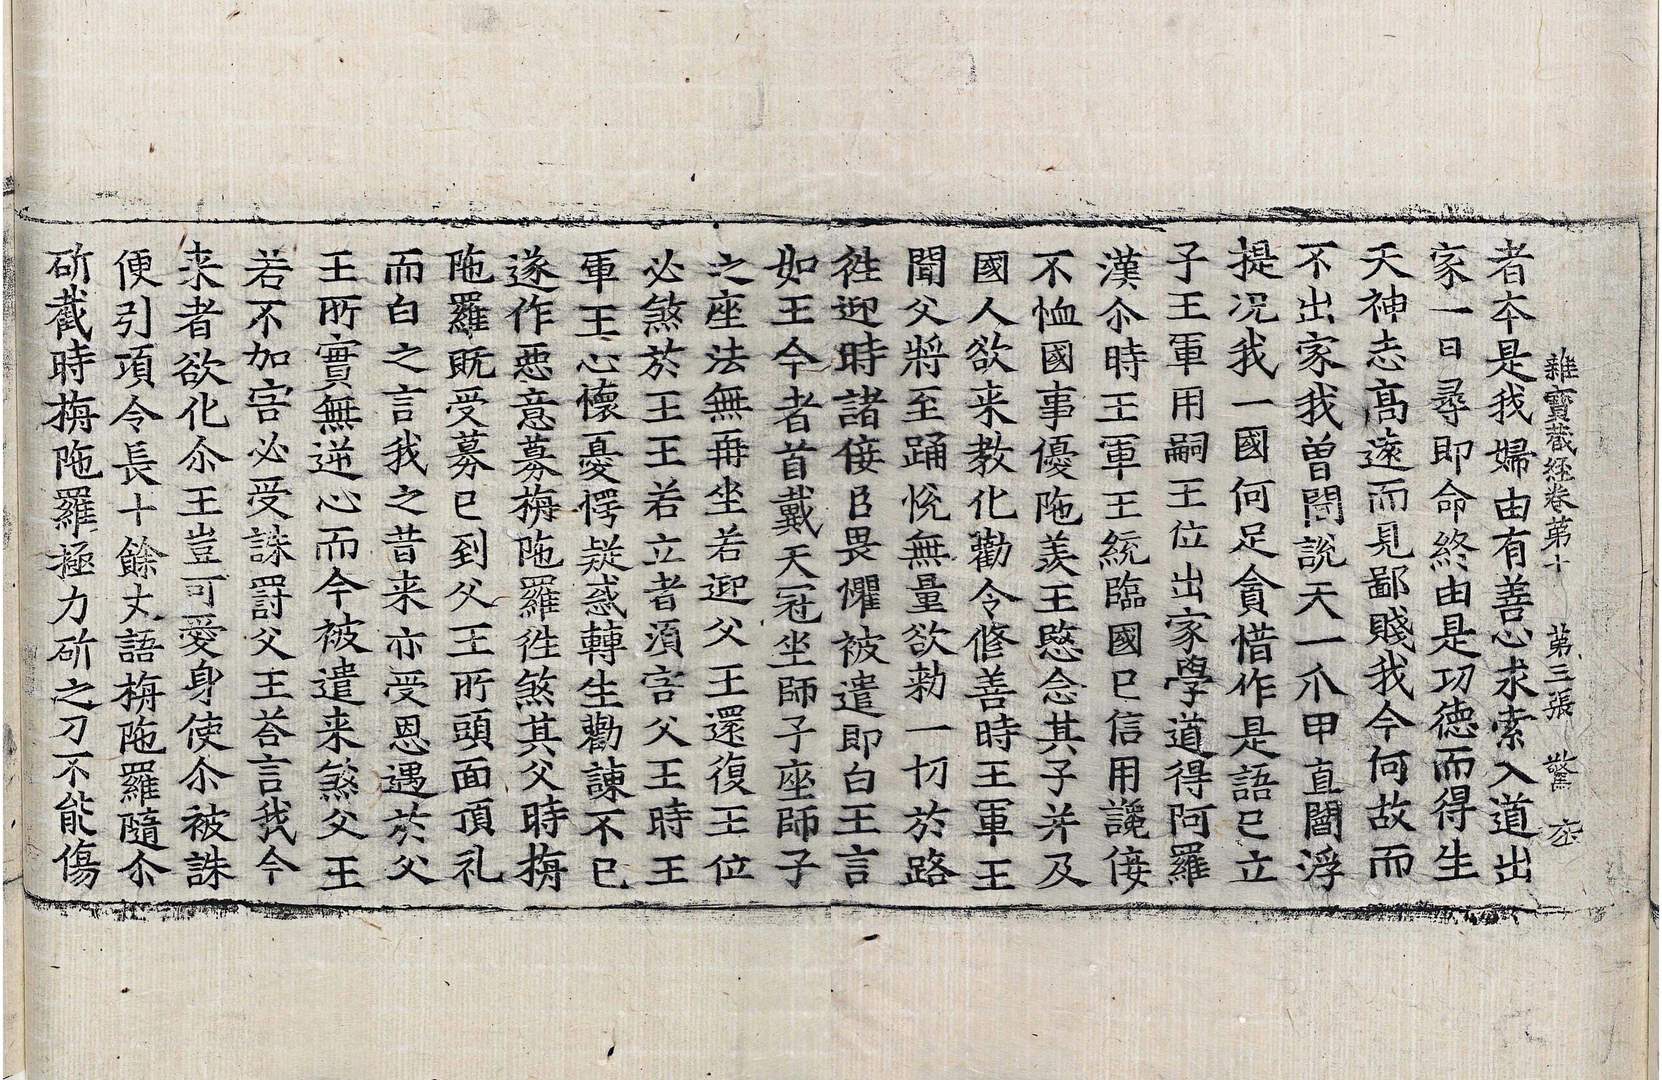 雜寶藏經卷第十 第三張 驚
者本是我婦由有善心求索入道出
家一日尋即命終由是功德而得生
天神志高遠而見鄙賤我今何故而
不出家我曽聞說天一爪甲直閻浮
提况我一國何足貪惜作是語已立
子王軍用嗣王位出家學道得阿羅
漢尒時王軍王統臨國已信用讒侫
不恤國事優陁羡王愍念其子并及
國人欲来教化勸令修善時王軍王
聞父將至踊悅無量欲勑一切於路
徃迎時諸侫臣畏懼被遣即白王言
如王今者首戴天冠坐師子座師子
之座法無再坐若迎父王還復王位
必煞於王王若立者須害父王時王
軍王心懷憂愕疑惑轉生勸諫不已
遂作惡意募栴陁羅徃煞其父時栴
陁羅既受募已到父王所頭面頂礼
而白之言我之昔来亦受恩遇於父
王所實無逆心而今被遣来煞父王
若不加害必受誅罰父王荅言我今
来者欲化尒王豈可愛身使尒被誅
便引項令長十餘丈語栴陁羅隨尒
斫截時栴陁羅極力斫之刀不能傷